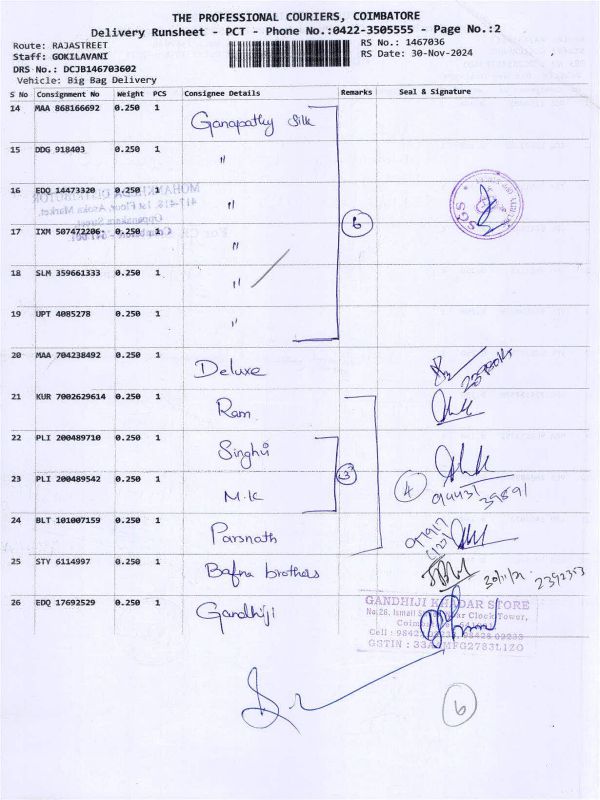 THE PROFESSIONAL COURIERS, COIMBATORE
Delivery Runsheet - PCT - Phone No.:0422-3505555 - Page No.:2
Route: RAJASTREET
RS No.: 1467036
Staff: GOKILAVANI
RS Date: 30-Nov-2024
DRS No.: DCJB146703602
Vehicle: Big Bag Delivery
S No Consignment No Weight PCS Consignee Details Remarks Seal & Signature
14 MAA 868166692 0.250 1 Ganapathy Silk
15 DDG 918403 0.250 1 "
16 EDQ 14473320 0.250 1 "
6
SGS
17 IXM 507472206 0.250 1 "
18 SLM 359661333 0.250 1 "
19 UPT 4085278 0.250 1 "
20 MAA 704238492 0.250 1 Deluxe
21 KUR 7002629614 0.250 1 Ram
22 PLI 200489710 0.250 1 Singhvi
23 PLI 200489542 0.250 1 M.K 3 4
24 BLT 101007159 0.250 1 Parsnath
25 STY 6114997 0.250 1 Bafna brothers 2392353
26 EDQ 17692529 0.250 1 Gandhiji
GANDHIJI KHADAR STORE
No.26, Ismail Clock Tower,
GSTIN : 33
6